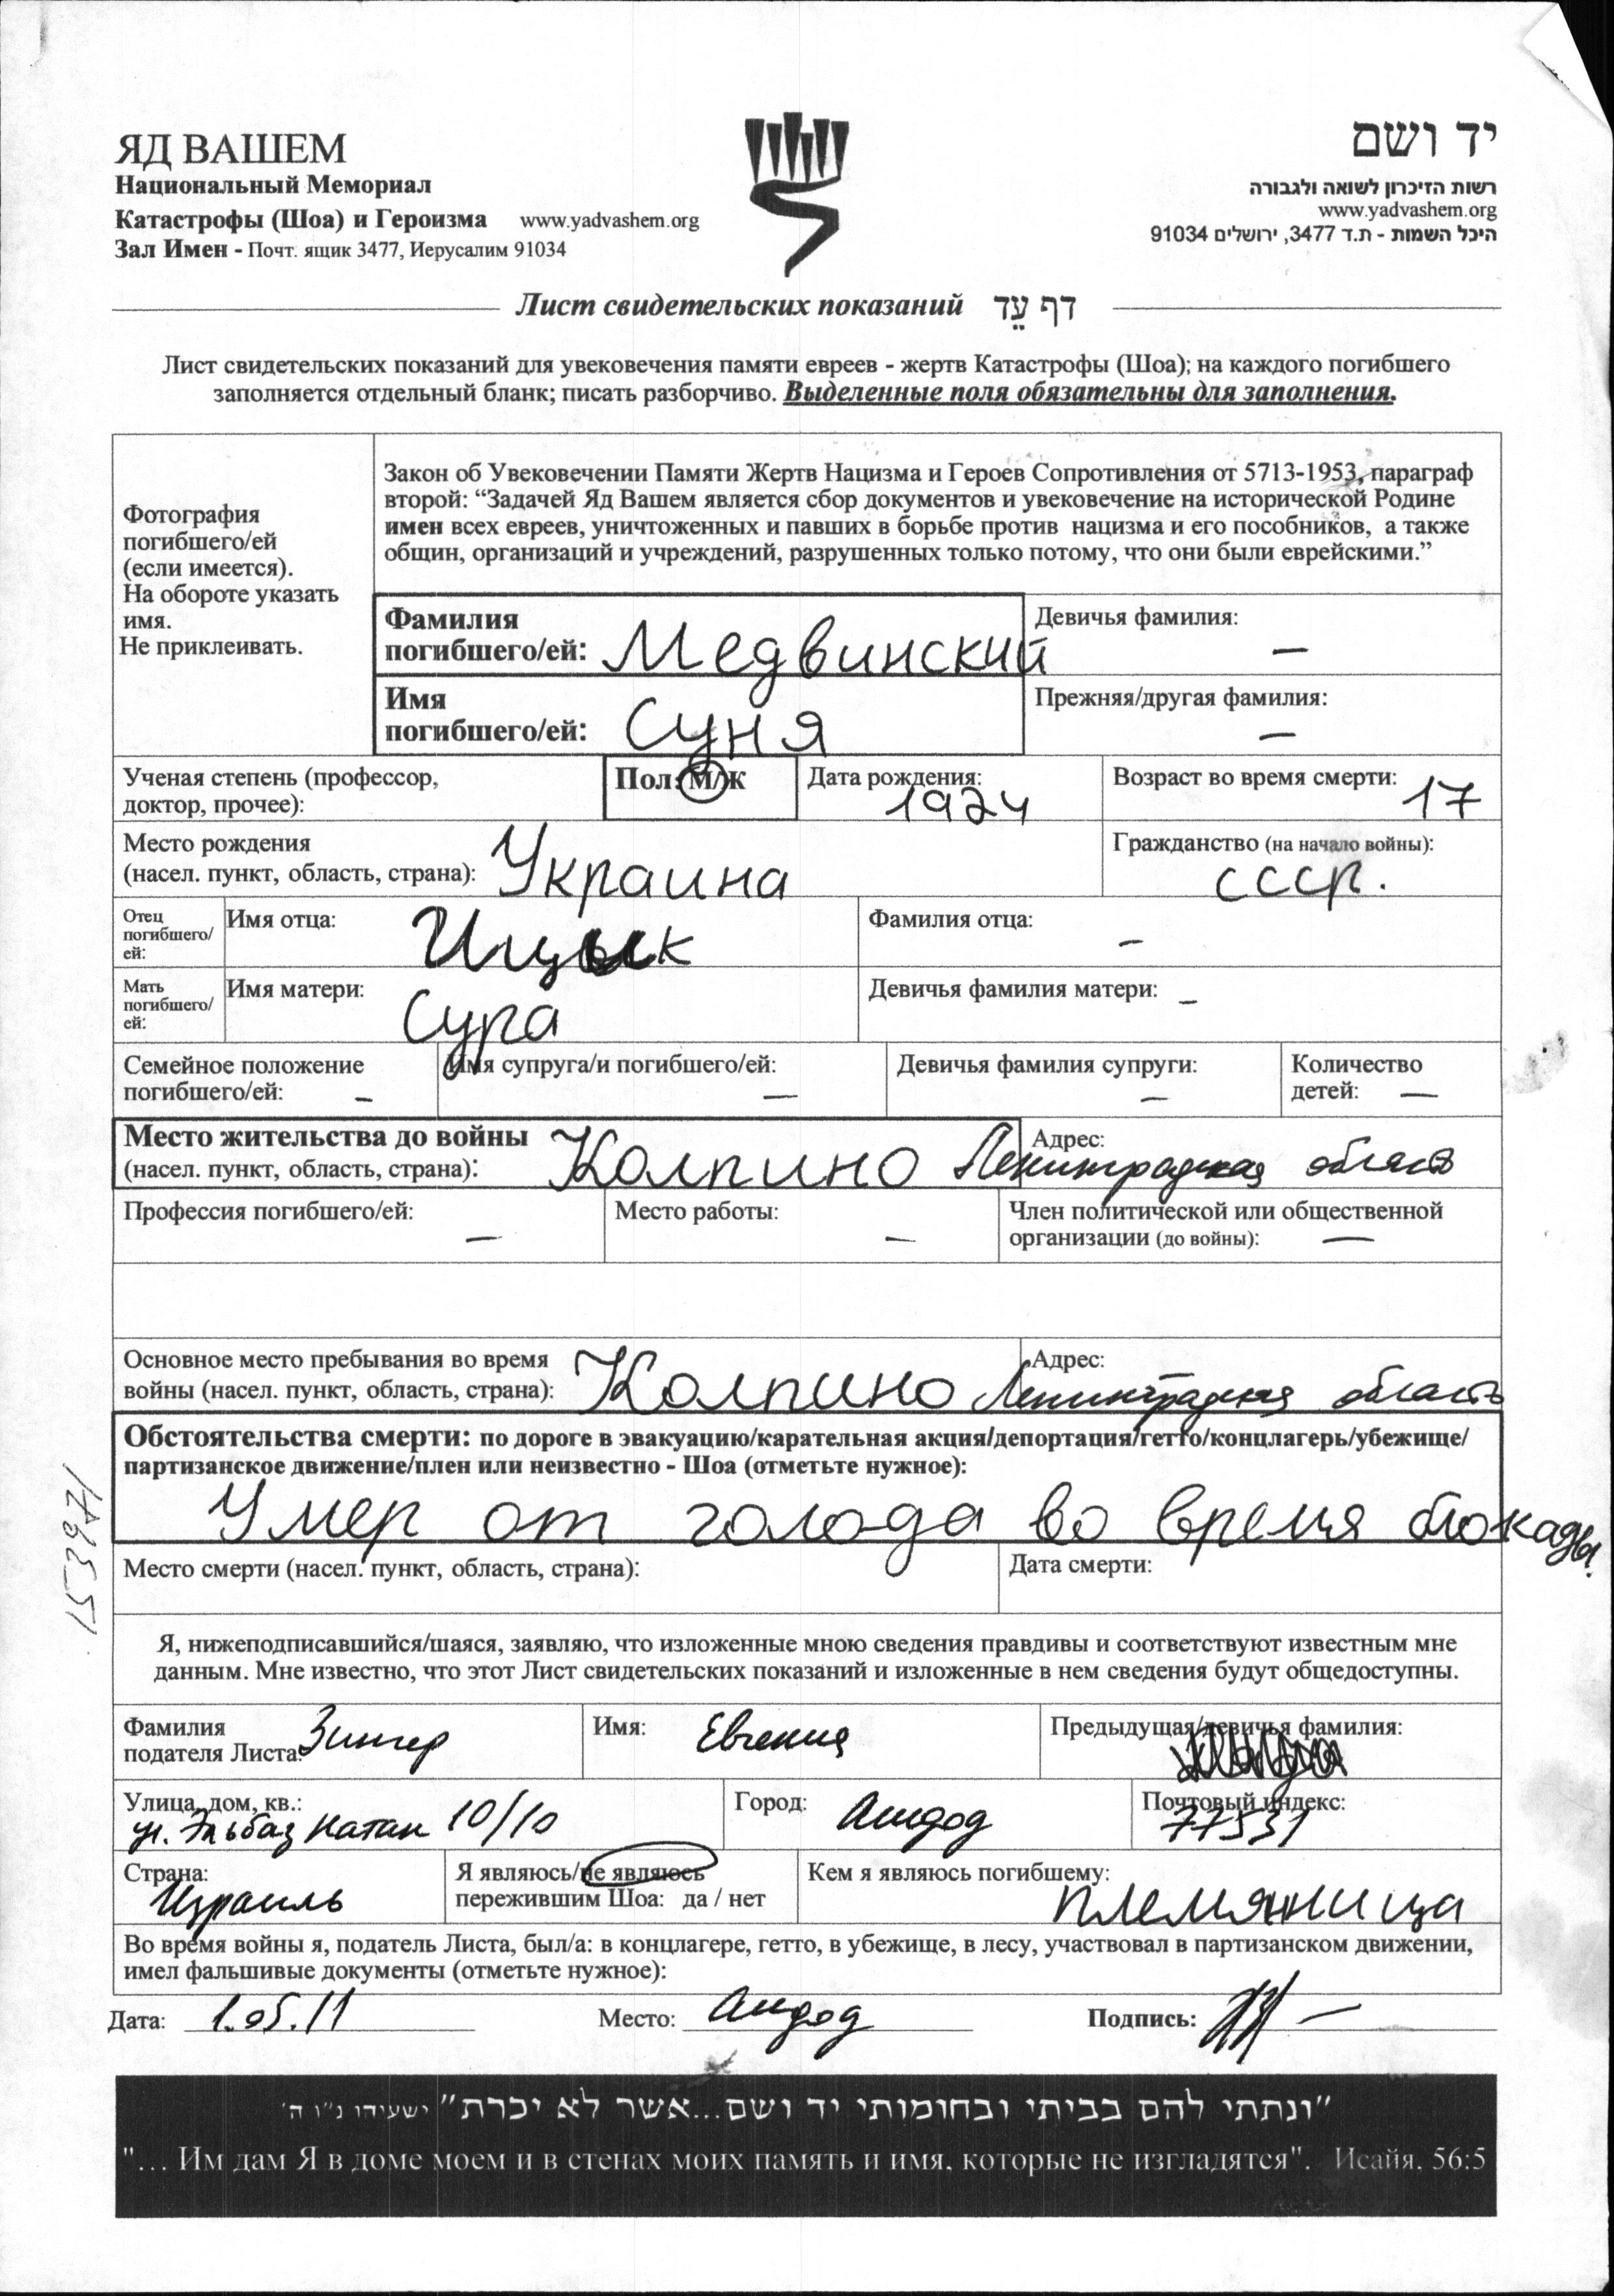 ЯД ВАШЕМ
Национальный Мемориал
Катастрофы (Шоа) и Героизма www.yadvashem.org
Зал Имен - Почт. ящик 3477, Иерусалим 91034
יד ושם
רשות הזיכרון לשואה ולגבורה
www.yadvashem.org
היכל השמות - ת.ד 3477, ירושלים 91034
Лист свидетельских показаний דף עֵד
Лист свидетельских показаний для увековечения памяти евреев - жертв Катастрофы (Шоа); на каждого погибшего
заполняется отдельный бланк; писать разборчиво. Выделенные поля обязательны для заполнения.
Фотография
погибшего/ей
(если имеется).
На обороте указать
имя.
Не приклеивать.
Закон об Увековечении Памяти Жертв Нацизма и Героев Сопротивления от 5713-1953, параграф
второй: “Задачей Яд Вашем является сбор документов и увековечение на исторической Родине
имен всех евреев, уничтоженных и павших в борьбе против нацизма и его пособников, а также
общин, организаций и учреждений, разрушенных только потому, что они были еврейскими.”
Фамилия
погибшего/ей: Медвинский
Девичья фамилия:
—
Имя
погибшего/ей: Суня
Прежняя/другая фамилия:
—
Ученая степень (профессор,
доктор, прочее):
Пол: М/Ж
Дата рождения:
1924
Возраст во время смерти: 17
Место рождения
(насел. пункт, область, страна): Украина
Гражданство (на начало войны):
СССР.
Отец
погибшего/
ей:
Имя отца: Ицык
Фамилия отца: –
Мать
погибшего/
ей:
Имя матери: Сура
Девичья фамилия матери: –
Семейное положение
погибшего/ей: –
Имя супруга/и погибшего/ей:
—
Девичья фамилия супруги:
—
Количество
детей: —
Место жительства до войны
(насел. пункт, область, страна): Колпино Ленинградская область
Адрес:
Профессия погибшего/ей:
—
Место работы:
—
Член политической или общественной
организации (до войны): —
Основное место пребывания во время
войны (насел. пункт, область, страна): Колпино Ленинградская область
Адрес:
Обстоятельства смерти: по дороге в эвакуацию/карательная акция/депортация/гетто/концлагерь/убежище/
партизанское движение/плен или неизвестно - Шоа (отметьте нужное):
Умер от голода во время блокады.
Место смерти (насел. пункт, область, страна):
Дата смерти:
153971
Я, нижеподписавшийся/шаяся, заявляю, что изложенные мною сведения правдивы и соответствуют известным мне
данным. Мне известно, что этот Лист свидетельских показаний и изложенные в нем сведения будут общедоступны.
Фамилия
подателя Листа: Зингер
Имя: Евгения
Предыдущая/девичья фамилия:
Улица, дом, кв.:
ул. Эльбаз Натан 10/10
Город: Ашдод
Почтовый индекс:
77531
Страна:
Израиль
Я являюсь/не являюсь
пережившим Шоа: да / нет
Кем я являюсь погибшему:
племянница
Во время войны я, податель Листа, был/а: в концлагере, гетто, в убежище, в лесу, участвовал в партизанском движении,
имел фальшивые документы (отметьте нужное):
Дата: 1.05.11 Место: Ашдод Подпись:
"ונתתי להם בביתי ובחומותי יד ושם...אשר לא יכרת" ישעיהו נ"ו ה'
"... Им дам Я в доме моем и в стенах моих память и имя, которые не изгладятся". Исайя, 56:5